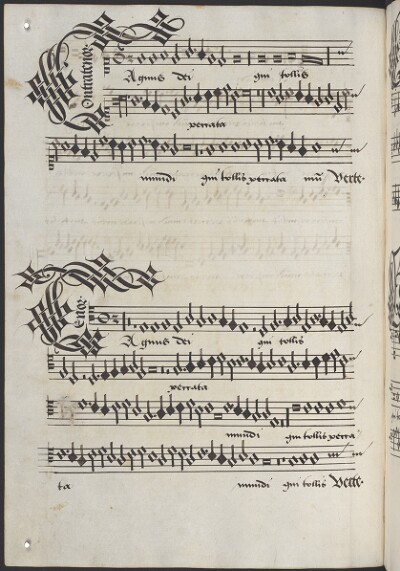 Contratenor
Agnus dei qui tollis
peccata
mundi qui tollis peccata mu Verte
Tenor
Agnus dei qui tollis
peccata
mundi qui tollis pecca
ta mundi qui tollis Verte